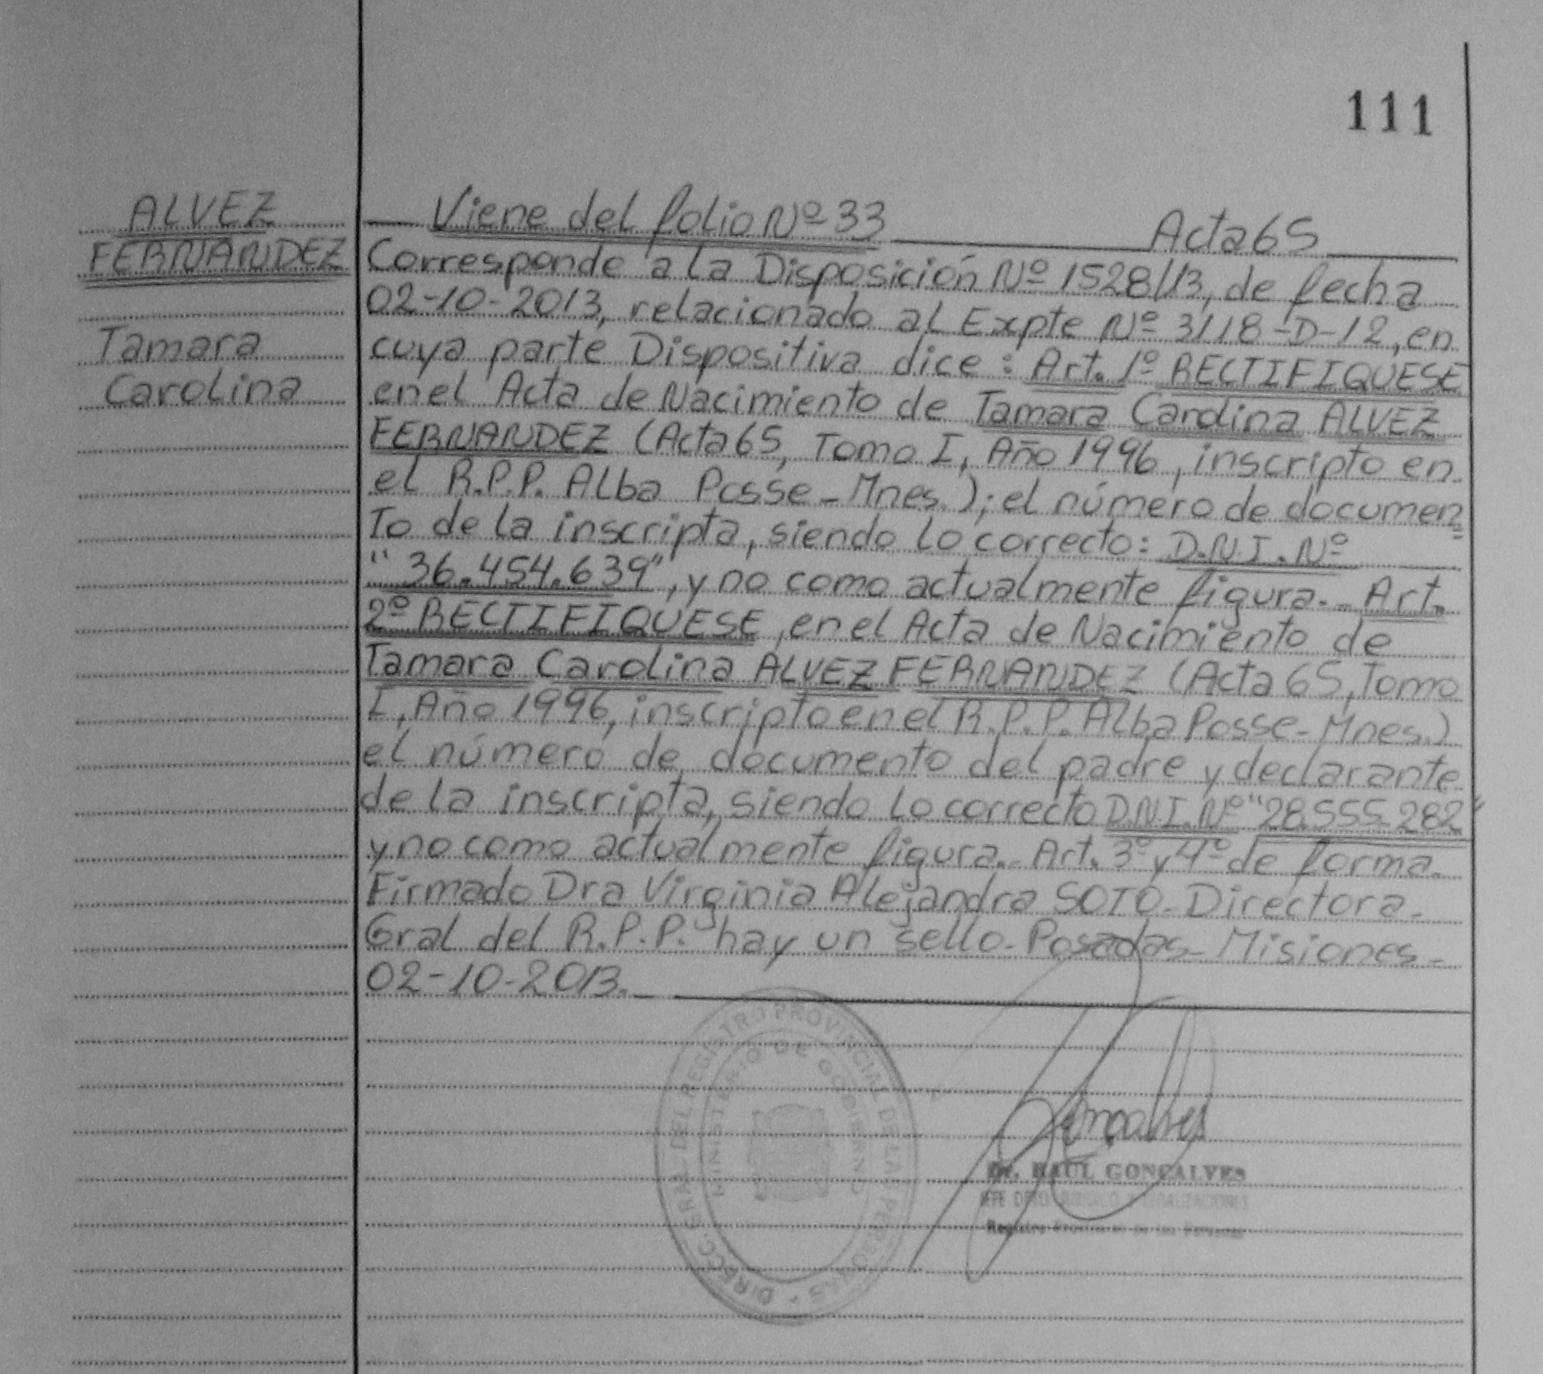 111
ALVEZ
FERNANDEZ
Tamara
Carolina
Viene del folio Nº 33 Acta 65
Corresponde a la Disposición Nº 1528/13, de fecha
02-10-2013, relacionado al Expte Nº 3118-D-12, en
cuya parte Dispositiva dice: Art. 1º RECTIFIQUESE
en el Acta de Nacimiento de Tamara Carolina ALVEZ
FERNANDEZ (Acta 65, Tomo I, Año 1996, inscripto en
el R.P.P. Alba Posse - Mnes.); el número de documen=
to de la inscripta, siendo lo correcto: D.N.I. Nº
"36.454.639", y no como actualmente figura.- Art.
2º RECTIFIQUESE, en el Acta de Nacimiento de
Tamara Carolina ALVEZ FERNANDEZ (Acta 65, Tomo
I, Año 1996, inscripto en el R.P.P. Alba Posse - Mnes.)
el número de documento del padre y declarante
de la inscripta, siendo lo correcto D.N.I. Nº "28.555.282"
y no como actualmente figura.- Art. 3º y 4º de forma.
Firmado Dra Virginia Alejandra SOTO - Directora.
Gral del R.P.P. hay un sello - Posadas - Misiones -
02-10-2013.
DIRECC. GRAL. DEL REGISTRO PROVINCIAL DE LAS PERSONAS
MINISTERIO DE GOBIERNO
Goncalves
Dr. RAUL GONCALVES
Registro Provincial de las Personas